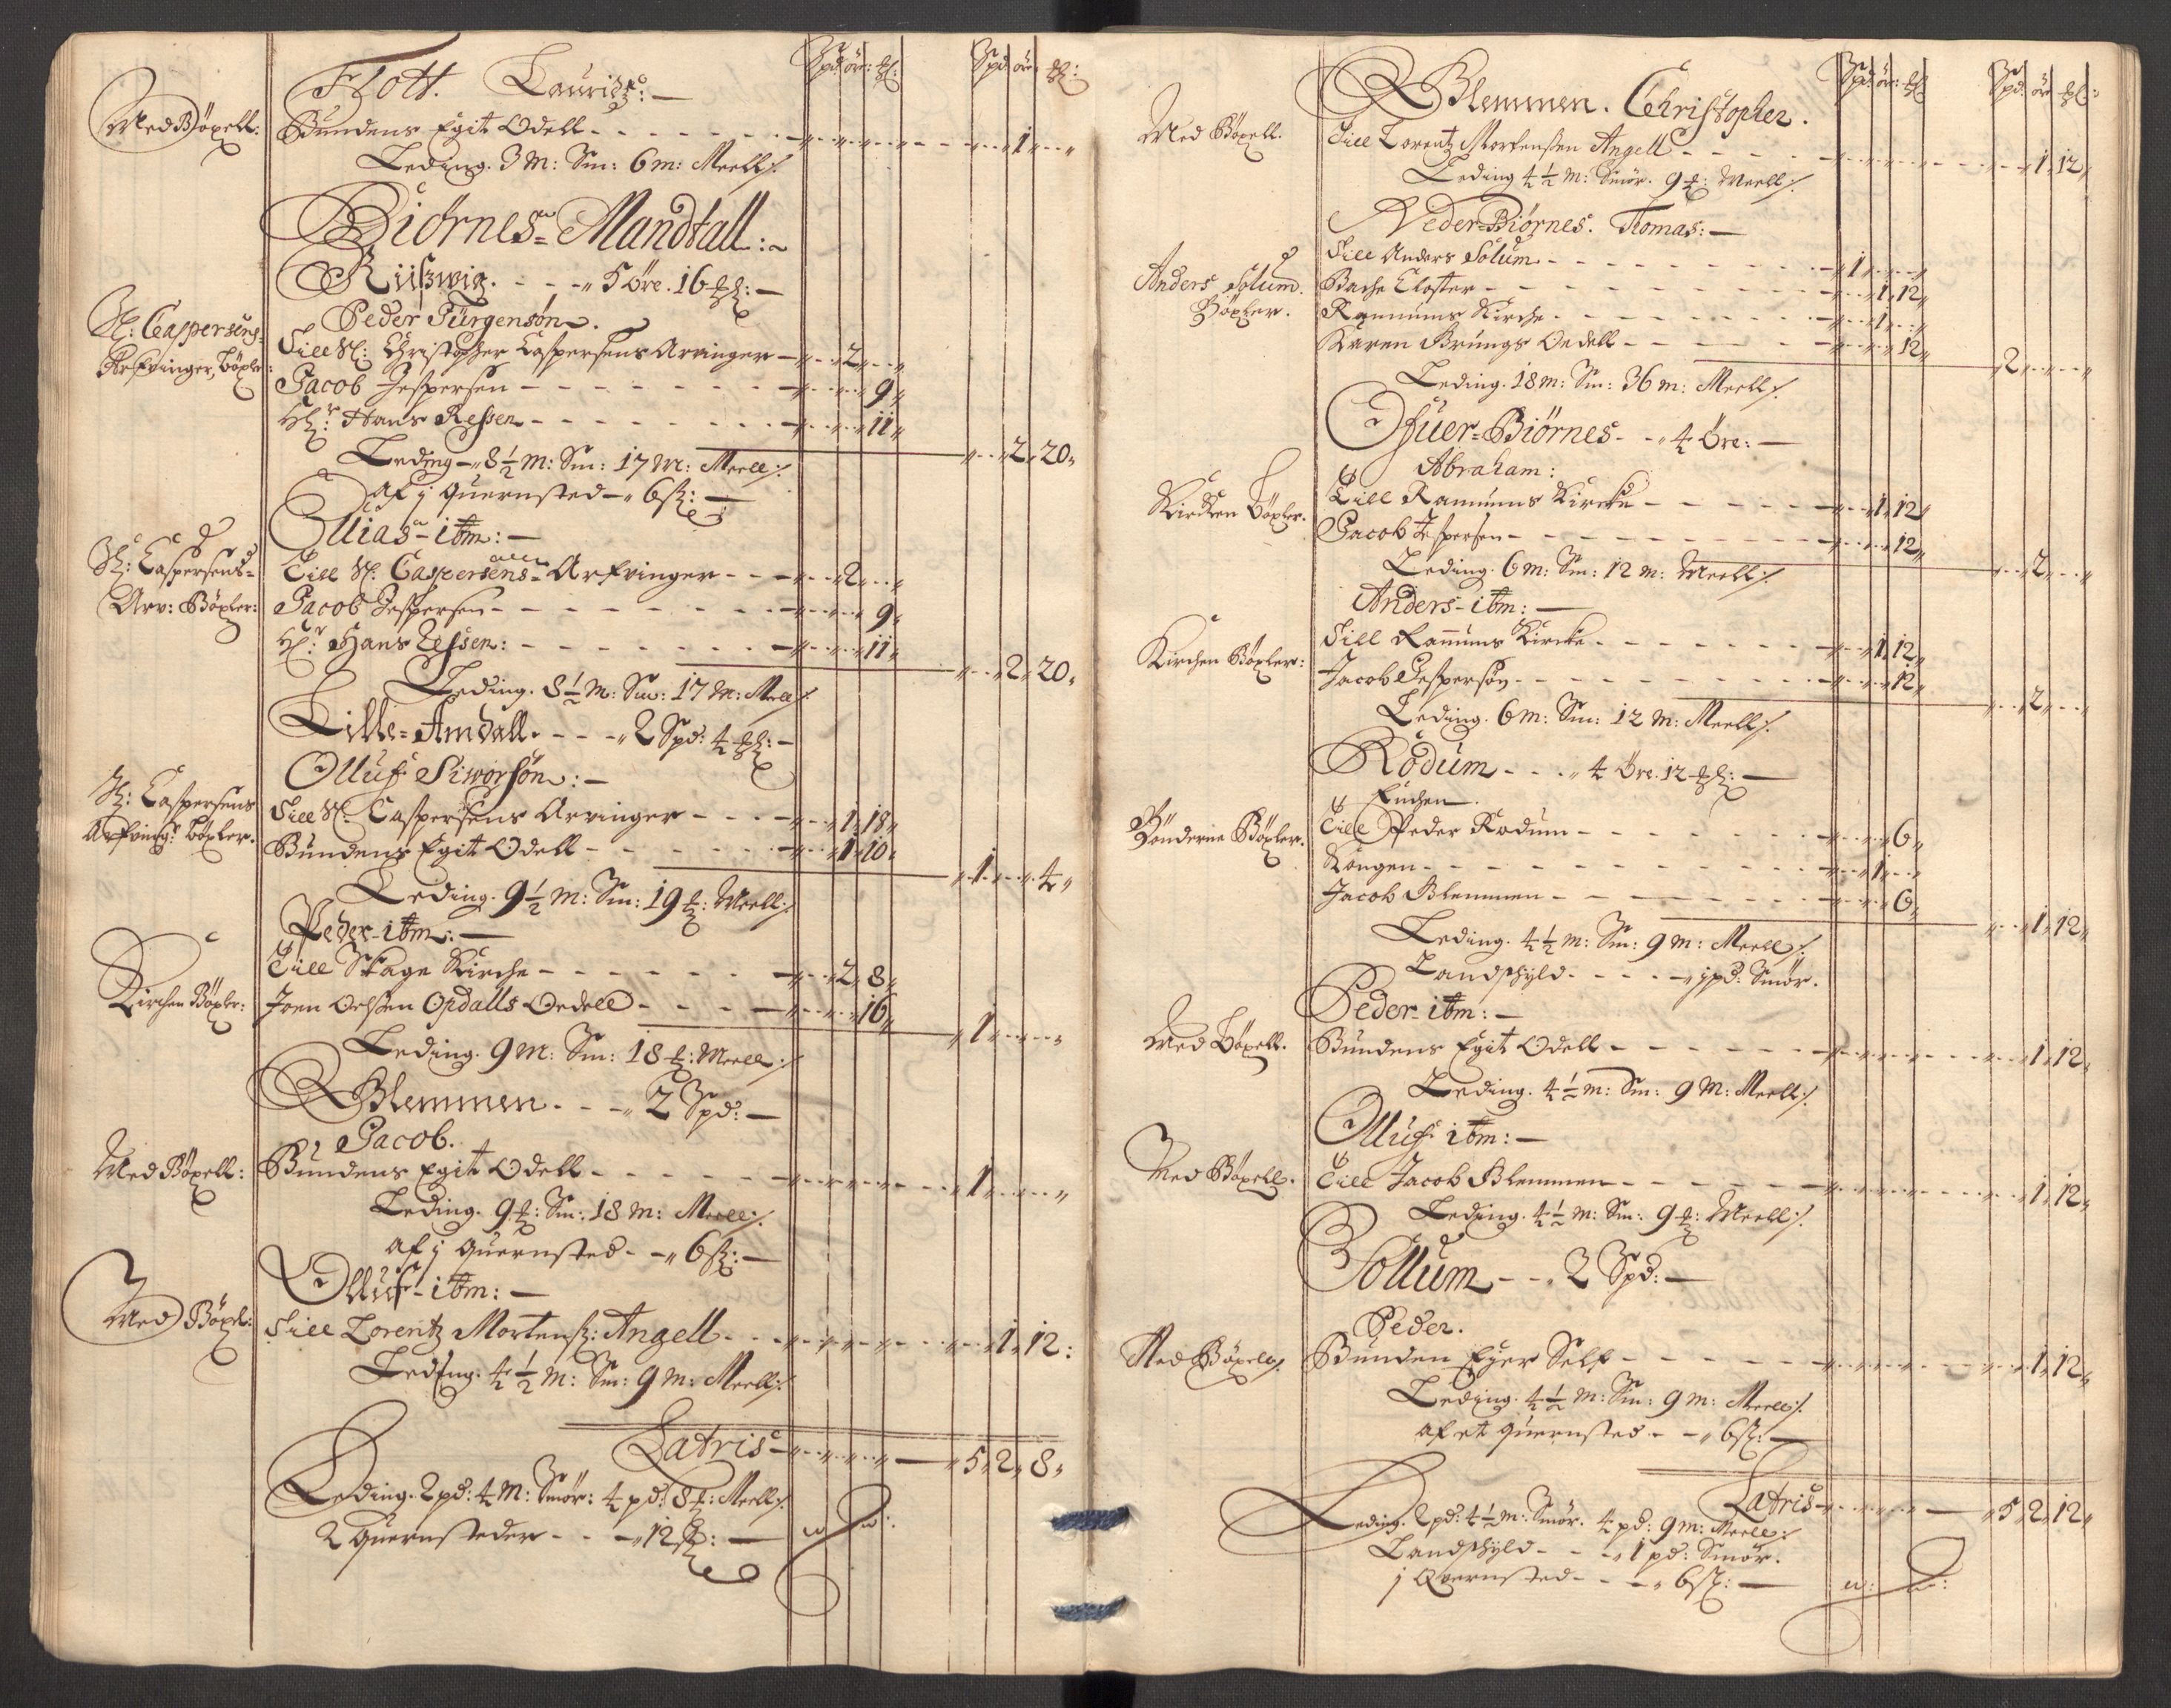 Spd: öre: ʒ: Spd: öre: ʒ:
Flott. Lauridtz: —
Med Böxell: Bundens Egit Odell - - - 1
Leding. 3 m: Sm: 6 m: Meell:/.
Biörnes-Mandtall:~
Riisswig. - - - 5 öre. 16 ʒ: —
Peder Jürgensøn.
Sl: Caspersens Arfvinger, böxler: Till Sl: Christopher Caspersens Arvinger — 2
Jacob Jespersen - - - 9
Hr: Hans - - - 11
2 20
Leding — 8½ m: Sm: 17 m: Meell:/.
af j Quernsted — 6 s: —
Ellias - itm: —
Sl: Caspersens Arv: Böxler: Till Sl. Caspersens Arfvinger - - - 2
Jacob Jespersen - - - 9
Hr: Hans - - - 11
2 20
Leding. 8½ m: Sm: 17 m: Meell/.
Lille-Amdall. - - - 2 Spd: 4 ʒ: —
Olluf Siworsøn: —
Sl: Caspersens Arfving: böxler. Till Sl. Caspersens Arvinger - - - 1 18
Bundens Egit Odell - - - 1 10
1 4
Leding. 9½ m: Sm: 19 m: Meell:/.
Peder - itm: —
Kirchen Böxler: Till Skage Kirche - - - 2 8
Joen Olssen Opdalls Oedell - - - 16
1
Leding. 9 m: Sm: 18 m: Meell:/.
Blemmen. - - 2 Spd: —
Jacob.
Med Böxell: Bundens Egit Odell - - - 1
Leding. 9 m: Sm: 18 m: Meell:/.
af j Quernsted - - 6 s: —
Olluf - itm: —
Med Böxel: Till Lorentz Mortens: Angell - - - 1 12
Leding. 4½ m: Sm: 9 m: Meell:/.
Latris — 5 2 8
Leding. 2 pd: 4 m: Smör: 4 pd: 8 m: Meell:/.
2 Quernsteder - - - 12 s: —
Spd: öre ʒ Spd: öre ʒ:
Blemmen. Christopher.
Med Böxell. Till Lorentz Mortensen Angell - - - 1 12
Leding 4½ m: Smör. 9 m: Meell:/.
Neder Biörnes. Tomas: —
Till Anders Solum - - - 1
Anders Solum Böxler. Bache Closter - - - 1 12
Rannums Kirche - - - 1
Karen Brungs Oedell - - - 12
2
Leding. 18 m: Sm: 36 m: Meell:/.
Ofuer-Biörnes - - 4 öre: —
Abraham:
Kircken Böxler. Till Rannums Kircke - - - 1 12
Jacob Jespersen - - - 12
2
Leding. 6 m: Sm: 12 m: Meell:/.
Anders - itm: —
Kirchen Böxler: Till Rannums Kircke - - - 1 12
Jacob Jespersøn - - - 12
2
Leding. 6 m: Sm: 12 m: Meell:/.
Rödum - - - 4 öre. 12 ʒ: —
Enchen.
Bönderne Böxler. Till Peder Rödum - - - 6
Kongen - - - 1
Jacob Blemmen - - - 6
1 12
Leding. 4½ m: Sm: 9 m: Meell:/.
Landschyld - - - j pd: Smör.
Peder - itm: —
Med Böxell. Bundens Egit Odell - - - 1 12
Leding. 4½ m: Sm: 9 m: Meell:/.
Olluf itm: —
Med Böxell. Till Jacob Blemmen - - - 1 12
Leding. 4½ m: Sm: 9 m: Meell:/.
Sollum - - 2 Spd: —
Peder.
Med Böxell Bunden Eyer Self - - - 1 12
Leding. 4½ m: Sm: 9 m: Meell:/.
af et Quernsted - - 6 s: —
Latris — 5 2 12
Leding. 2 pd: 4½ m: Smör. 4 pd: 9 m: Meell:/.
Landschyld - - - 1 pd: Smör.
j Qvernsted - - - 6 s: —